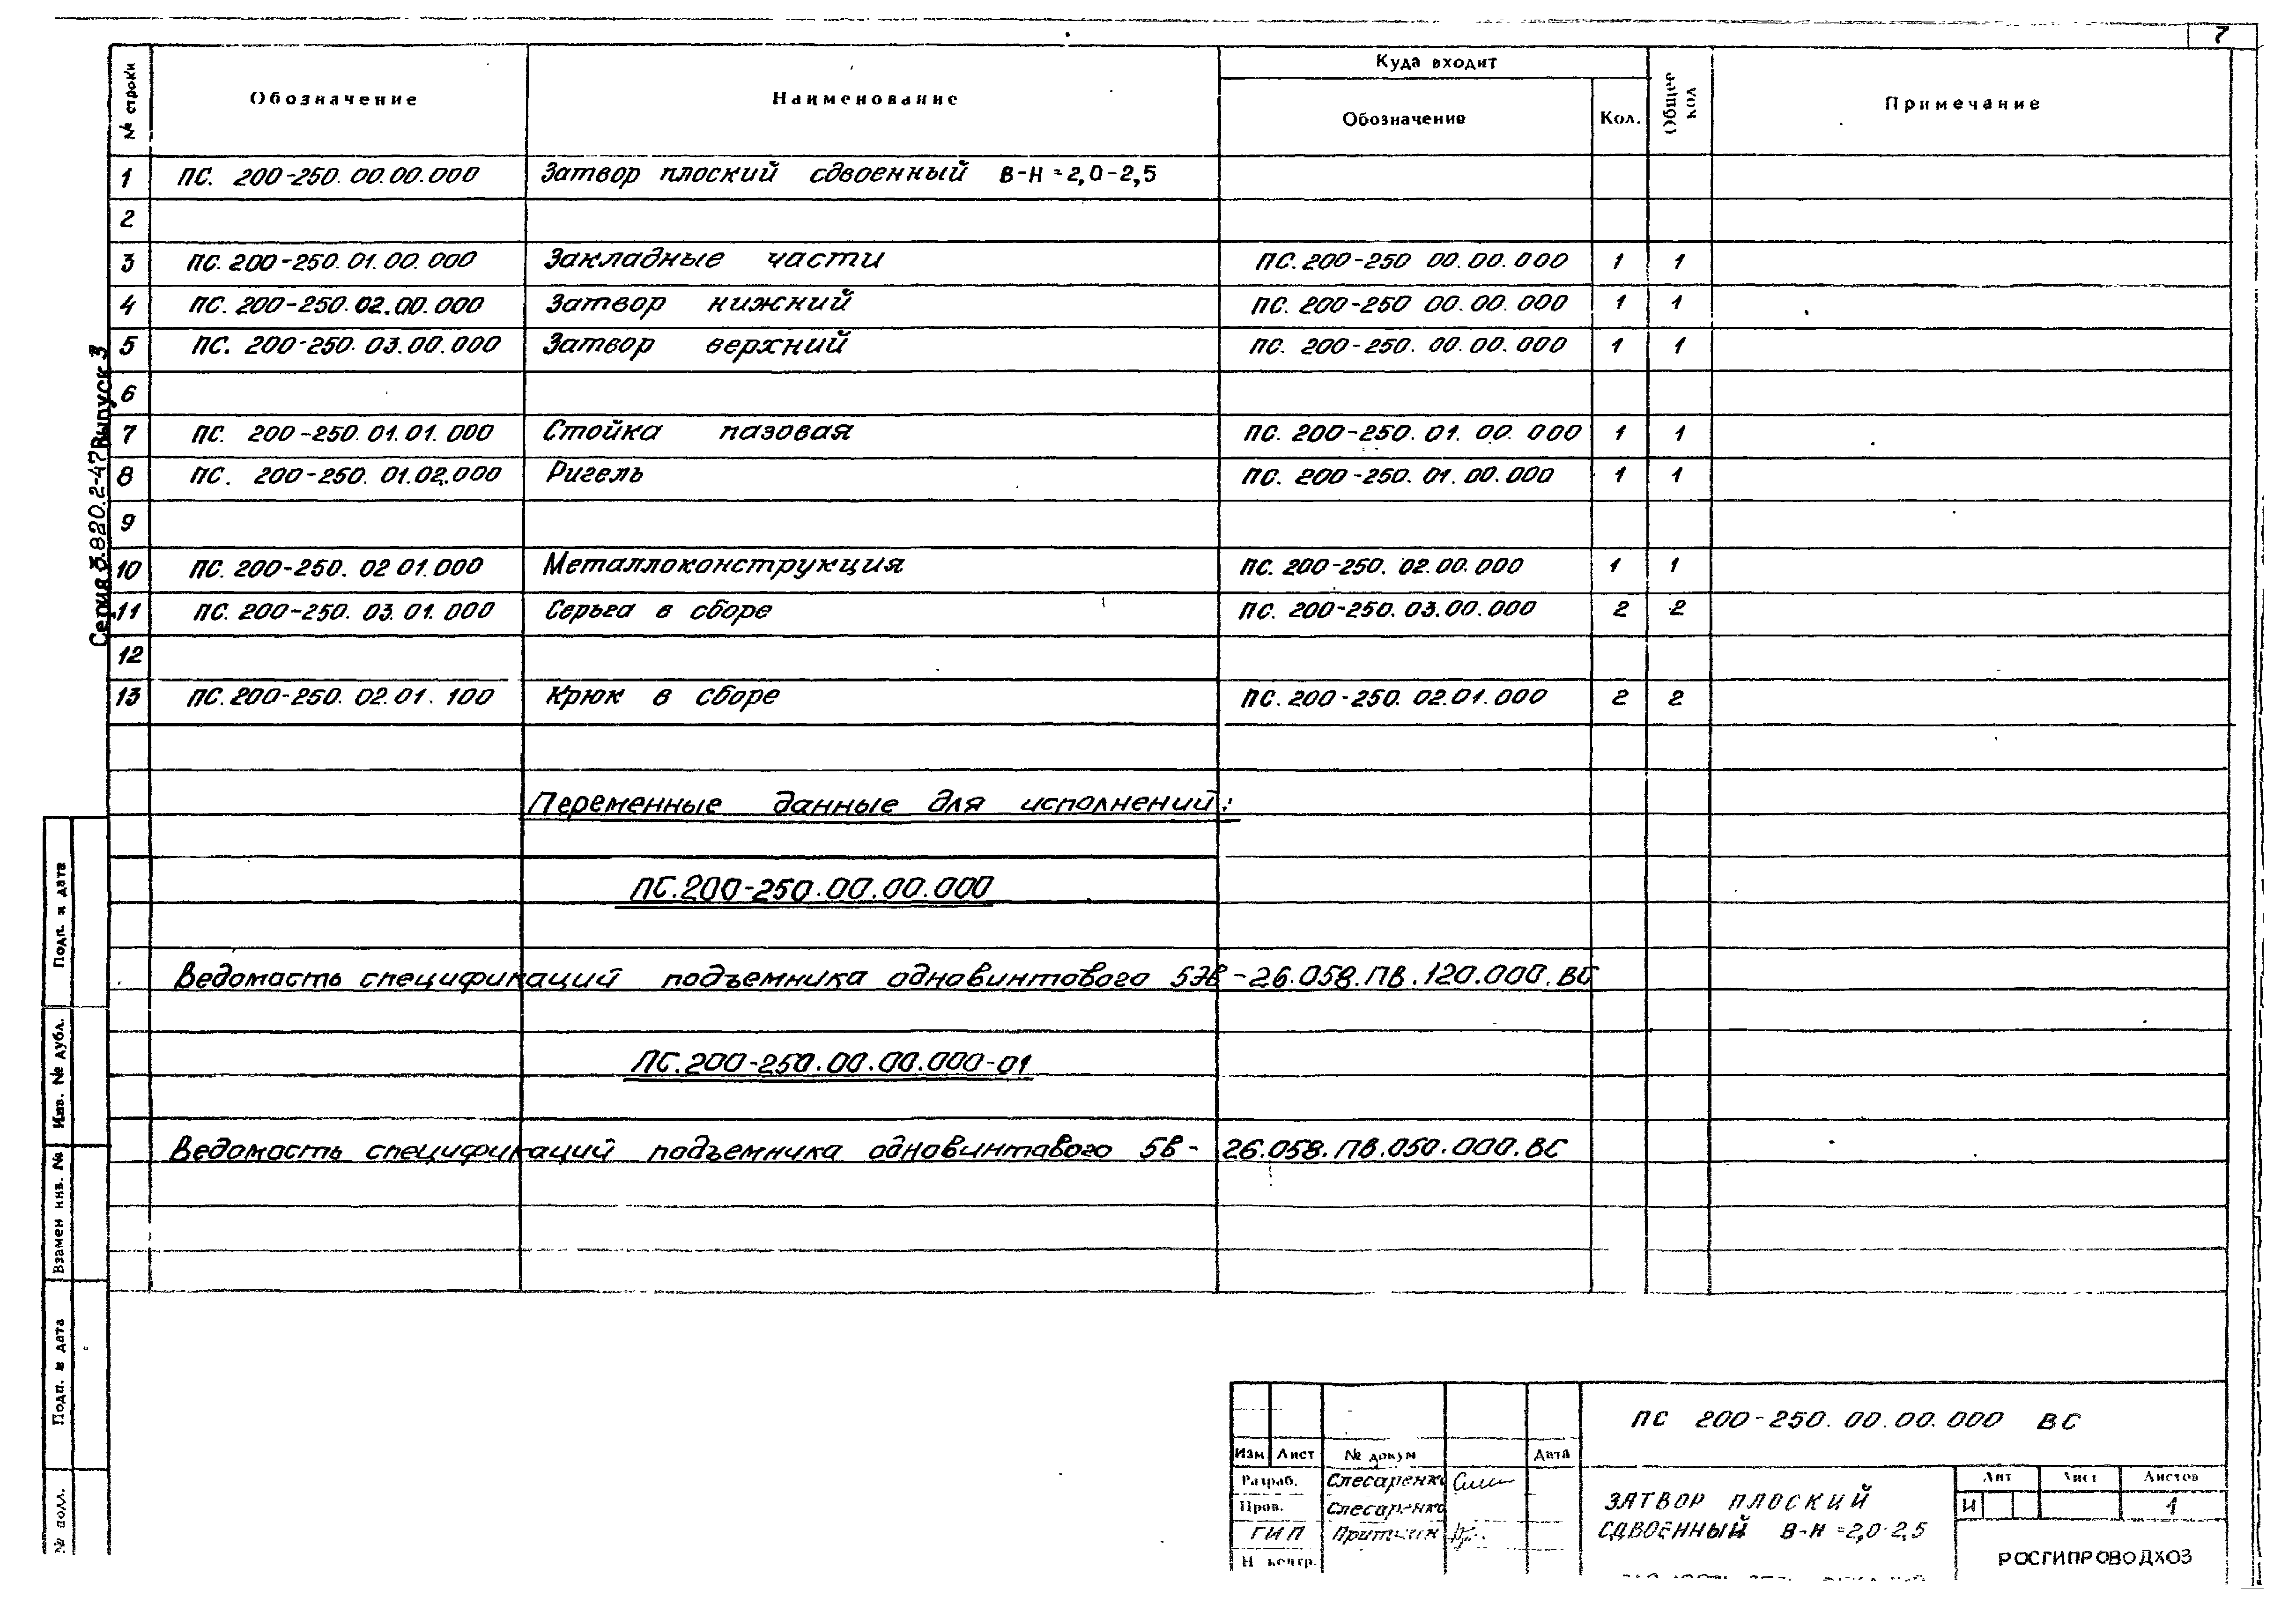 7
№ строки Обозначение Наименование Куда входит Общее кол Примечание
Обозначение Кол.
1 ПС. 200-250.00.00.000 Затвор плоский сдвоенный В-Н=2,0-2,5
2
3 ПС.200-250.01.00.000 Закладные части ПС.200-250 00.00.000 1 1
4 ПС.200-250.02.00.000 Затвор нижний ПС.200-250 00.00.000 1 1
5 ПС.200-250.03.00.000 Затвор верхний ПС.200-250.00.00.000 1 1
6
7 ПС. 200-250.01.01.000 Стойка пазовая ПС.200-250.01.00.000 1 1
8 ПС. 200-250.01.02.000 Ригель ПС.200-250.01.00.000 1 1
9
10 ПС.200-250.02 01.000 Металлоконструкция ПС.200-250.02.00.000 1 1
11 ПС.200-250.03.01.000 Серьга в сборе ПС.200-250.03.00.000 2 2
12
13 ПС.200-250.02.01.100 Крюк в сборе ПС.200-250.02.01.000 2 2
Переменные данные для исполнений:
ПС.200-250.00.00.000
Ведомасть спецификаций подъемника одновинтового 5ЭВ-26.058.ПВ.120.000.ВС
ПС.200-250.00.00.000-01
Ведомасть спецификаций подъемника одновинтового 5В-26.058.ПВ.050.000.ВС
Серия 3.820.2-47 Выпуск 3
Подп. и дата
Инв. № дубл.
Взамен инв. №
Подп. и дата
№ подл.
ПС 200-250.00.00.000 ВС
Изм Лист № докум Дата
Разраб. Слесаренко
Пров. Слесаренко
ГИП
Н контр.
ЗАТВОР ПЛОСКИЙ
СДВОЕННЫЙ В-Н=2,0-2,5
Лит Лист Листов
И 1
РОСГИПРОВОДХОЗ